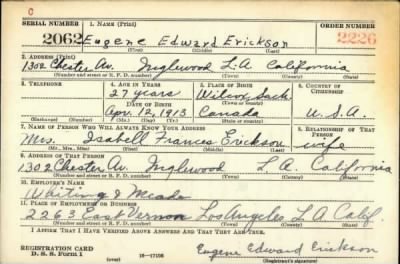 C
SERIAL NUMBER 1. NAME (Print) ORDER NUMBER
2062 Eugene Edward Erickson 2226
(First) (Middle) (Last)
2. ADDRESS (Print)
1302 Chester Av. Inglewood L.A. California
(Number and street or R. F. D. number) (Town) (County) (State)
3. TELEPHONE 4. AGE IN YEARS 5. PLACE OF BIRTH 6. COUNTRY OF CITIZENSHIP
27 years Wilcox, Sack.
DATE OF BIRTH (Town or county)
Apr. 12, 1913 Canada U.S.A.
(Exchange) (Number) (Mo.) (Day) (Yr.) (State or country)
7. NAME OF PERSON WHO WILL ALWAYS KNOW YOUR ADDRESS 8. RELATIONSHIP OF THAT PERSON
Mrs. Isabell Frances Erickson wife
(Mr., Mrs., Miss) (First) (Middle) (Last)
9. ADDRESS OF THAT PERSON
1302 Chester Av. Inglewood L.A. California
(Number and street or R. F. D. number) (Town) (County) (State)
10. EMPLOYER'S NAME
Whiting & Meade
11. PLACE OF EMPLOYMENT OR BUSINESS
2263 East Vernon Los Angeles L A Calif.
(Number and street or R. F. D. number) (Town) (County) (State)
I AFFIRM THAT I HAVE VERIFIED ABOVE ANSWERS AND THAT THEY ARE TRUE.
REGISTRATION CARD
D. S. S. Form 1 16—17105 Eugene Edward Erickson
(Registrant's signature)